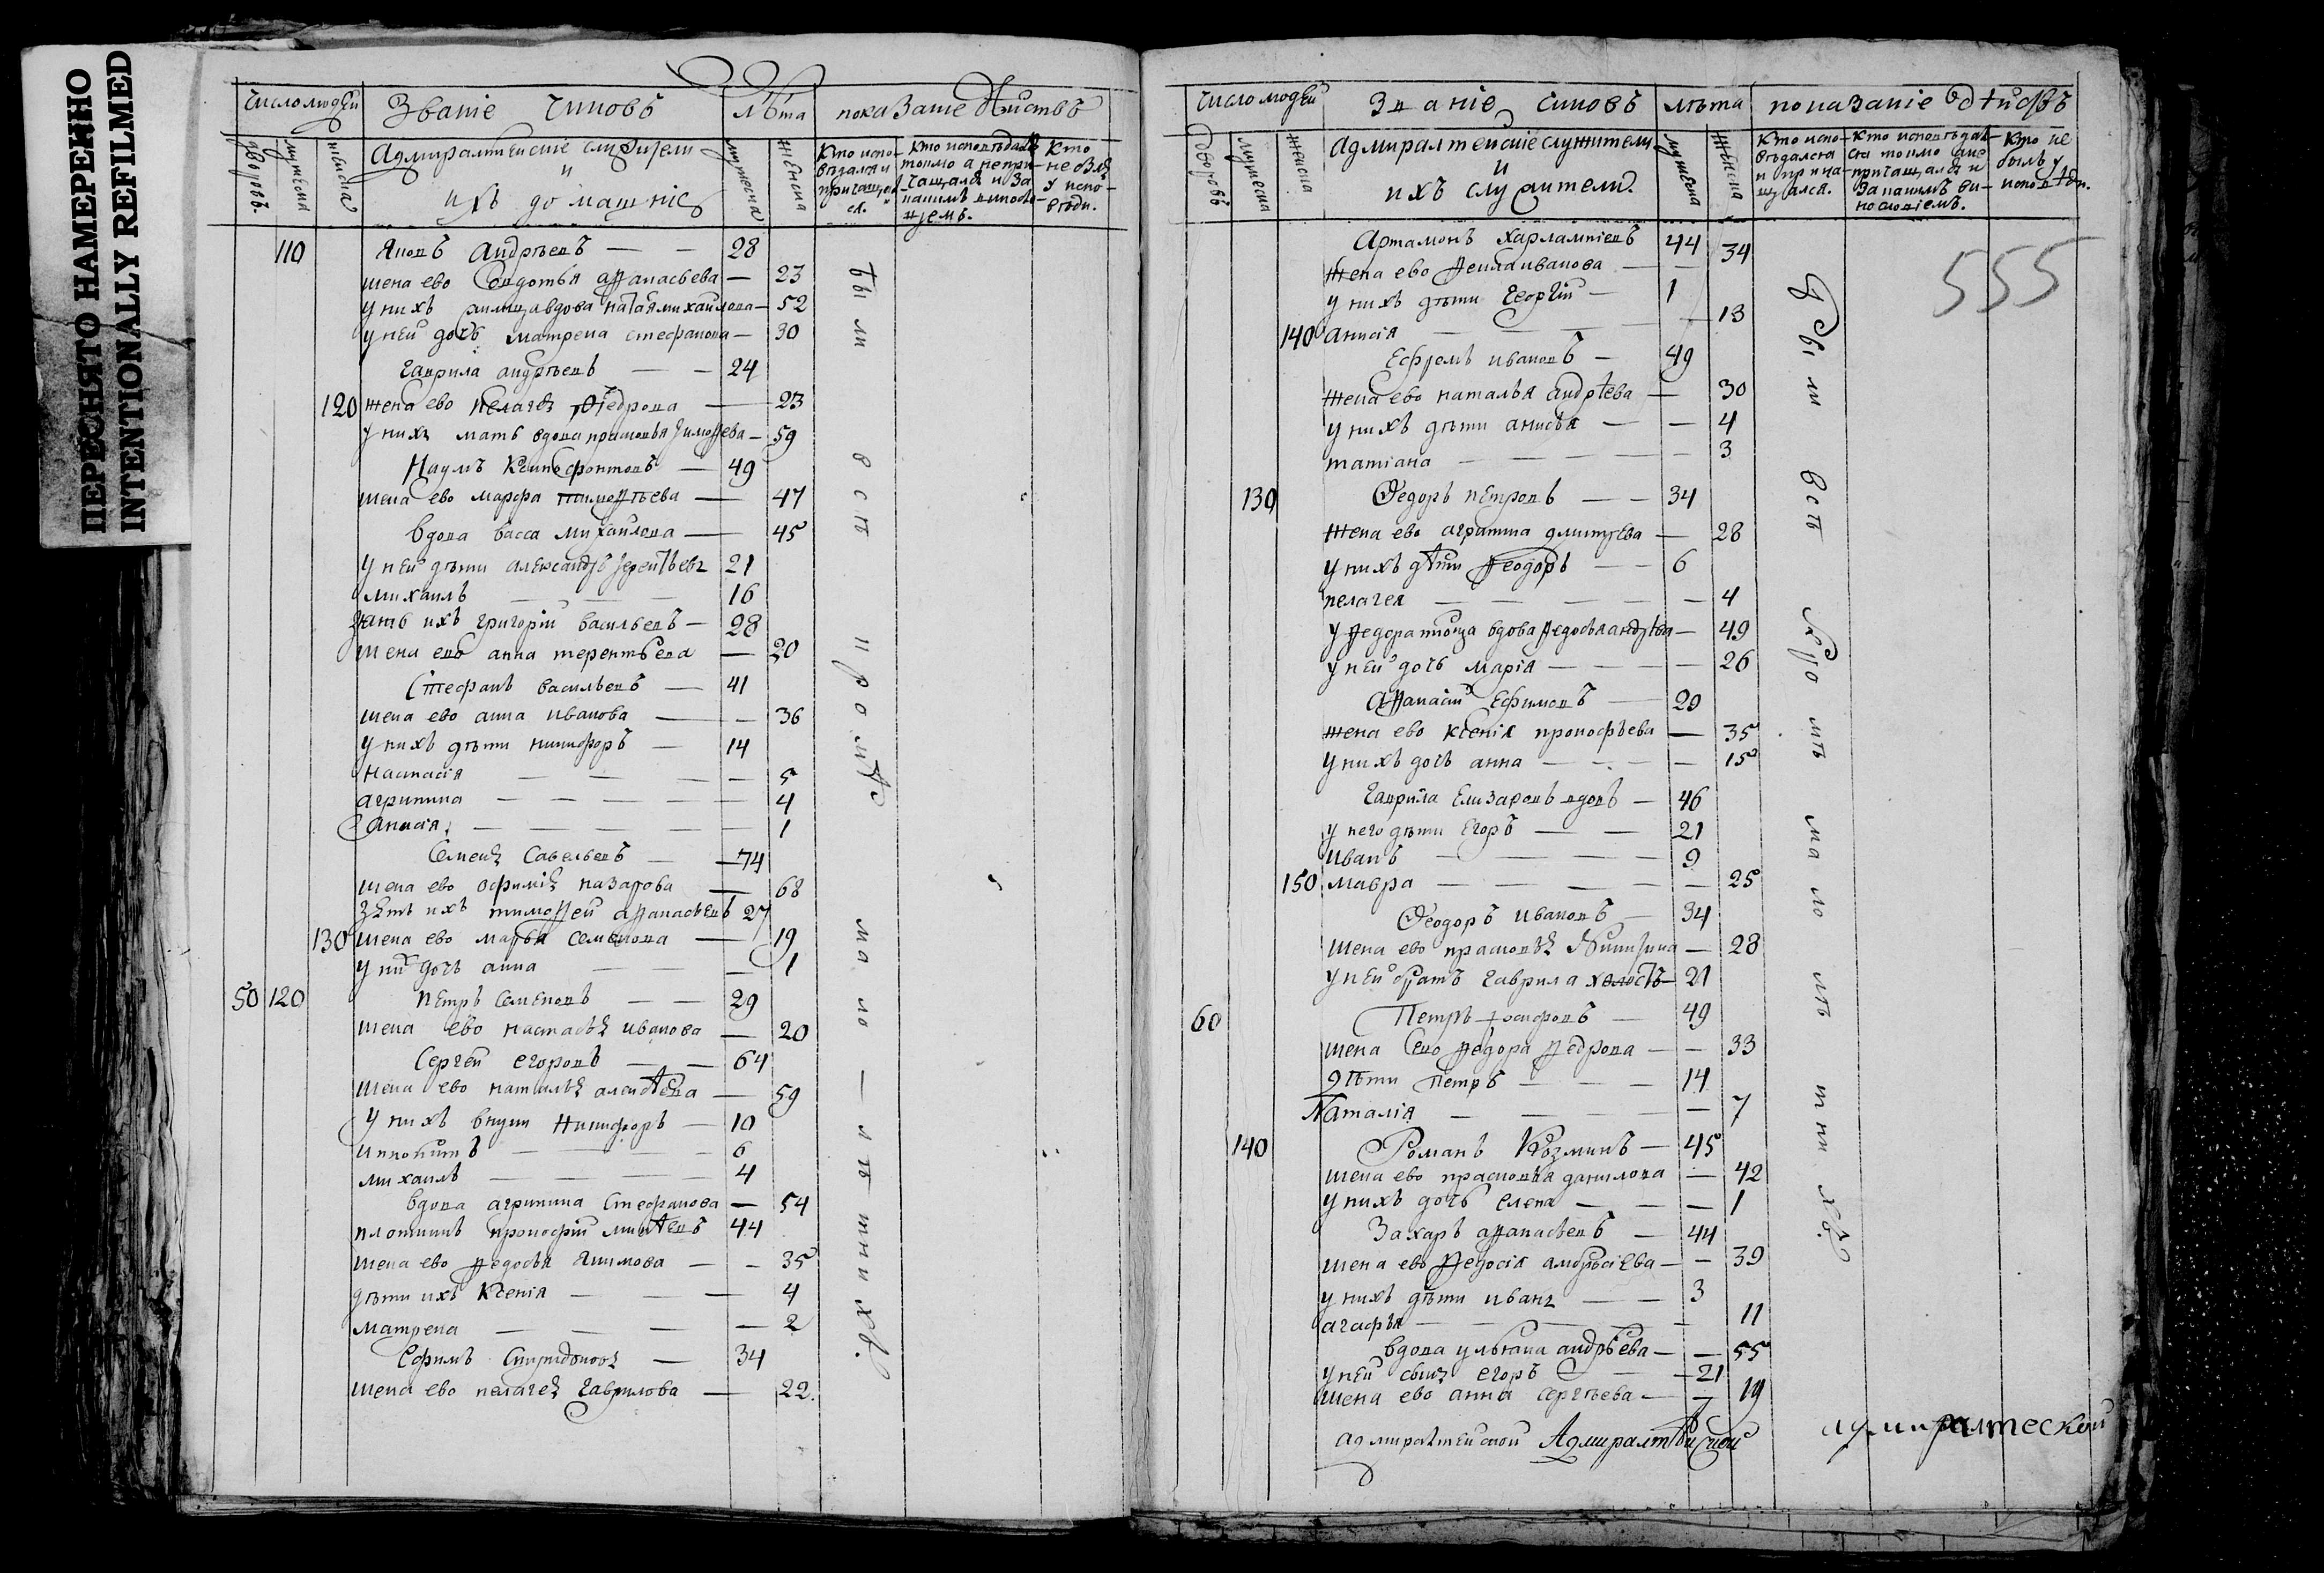 ПЕРЕСНЯТО НАМЕРЕННО
INTENTIONALLY REFILMED
число людей Званіе чиновъ лѣта показаніе
дворовъ. мужеска женска
адмиралтейскіе служители
и
ихъ домашніе
мужеска женска
Кто испо-
ведался и
причаща
ся.
кто исповѣдался
токмо а непри-
чащался и за
какимъ винословіемъ.
Кто
не былъ
у испо-
веди.
110 Яковъ андрѣевъ — — 28
жена ево Евдотья аѳанасьева — 23
у нихъ вдова михайлова — 52
у ней дочь матрена стефанова — 30
Гаврила андрѣевъ — — 24
120 жена ево пелагея Ѳедрова — 23
у нихъ мать вдова прасковья тимоѳева — 59
Наумъ Ксинефонтовъ — 49
жена ево марфа тимоѳѣева — 47
вдова васса михаилова — 45
у ней дѣти александръ терентьевъ 21
михаилъ — — — 16
зять ихъ григорій васильевъ — 28
жена ево анна терентьева — 20
Стефанъ васильевъ — 41
жена ево анна иванова — — 36
у нихъ дѣти никифоръ — 14
настасія — — — — 5
агрипина — — — — — 4
анисія — — — — — 1
Семенъ савельевъ — — 74
жена ево офимія назарова — 68
зять ихъ тимоѳей аѳанасьевъ 27
130 жена ево марья семенова — 19
у них дочь анна — — — 1
50 120 петръ семеновъ — — 29
жена ево настасья иванова — 20
сергей егоровъ — — 64
жена ево наталья алексѣева — 59
у нихъ внуки никифоръ — 10
ипполитъ — — — 6
михаилъ — — — — 4
вдова агрипина стефанова — 54
плотникъ прокофій никитевъ 44
жена ево ѳедосья якимова — — 35
дѣти ихъ ксенія — — — 4
матрена — — — — 2
ефимъ спиридоновъ — 34
жена ево пелагея гаврилова — 22.
ты ми
всѣ
кромѣ
мало — лѣтнихъ.
число людей Званіе чиновъ лѣта показаніе
дворовъ мужеска женска
адмиралтейскіе служители
и
ихъ служители.
мужеска женска
Кто испо-
вѣдался
и прича-
щался.
Кто исповѣдал-
ся токмо а не
причащался и
за какимъ ви-
нословіемъ.
Кто не
былъ у
исповѣди.
555
Артамонъ харлампіевъ 44
жена ево Ѳекла иванова — — 34
у нихъ дѣти георгій — 1
140 анисія — — — — 13
Ефремъ ивановъ — 49
жена ево наталья андрѣева — 30
у нихъ дѣти анисья — — 4
татіана — — — — — 3
130 Ѳедоръ петровъ — — 34
жена ево аграпина дмитрева — 28
у нихъ дѣти Ѳеодоръ — — 6
пелагея — — — — — 4
у Ѳедора вдова ѳедосья андрѣева — 49
у ней дочь марія — — — — 26
аѳанасій ефимовъ — 29
жена ево ксенія прокофьева — 35
у нихъ дочь анна — — — — 15
гаврила Елизаровъ вдовъ — 46
у него дѣти егоръ — — 21
иванъ — — — — 9
150 мавра — — — — — 25
Ѳеодоръ ивановъ — 34
жена ево прасковья никитина — 28
у ней братъ гаврила холостъ — 21
60 Петръ іосифовъ — 49
жена ево Ѳедора Ѳедрова — — 33
дѣти петръ — — — 14
Наталія — — — — 7
140 Романъ Козминъ — 45
жена ево прасковья данилова — 42
у нихъ дочь елена — — — 1
Захаръ аѳанасьевъ — 44
жена евъ Ѳедосія амбросіева — — 39
у нихъ дѣти иванъ — — 3
агафья — — — — — 11
вдова ульяна андрѣева — — 55
у ней сынъ егоръ — 21
жена ево анна сергѣева — — 19
адмиралтейской Адмиралтейской
адмиралтеской
были
всѣ
кромѣ
малолѣтнихъ